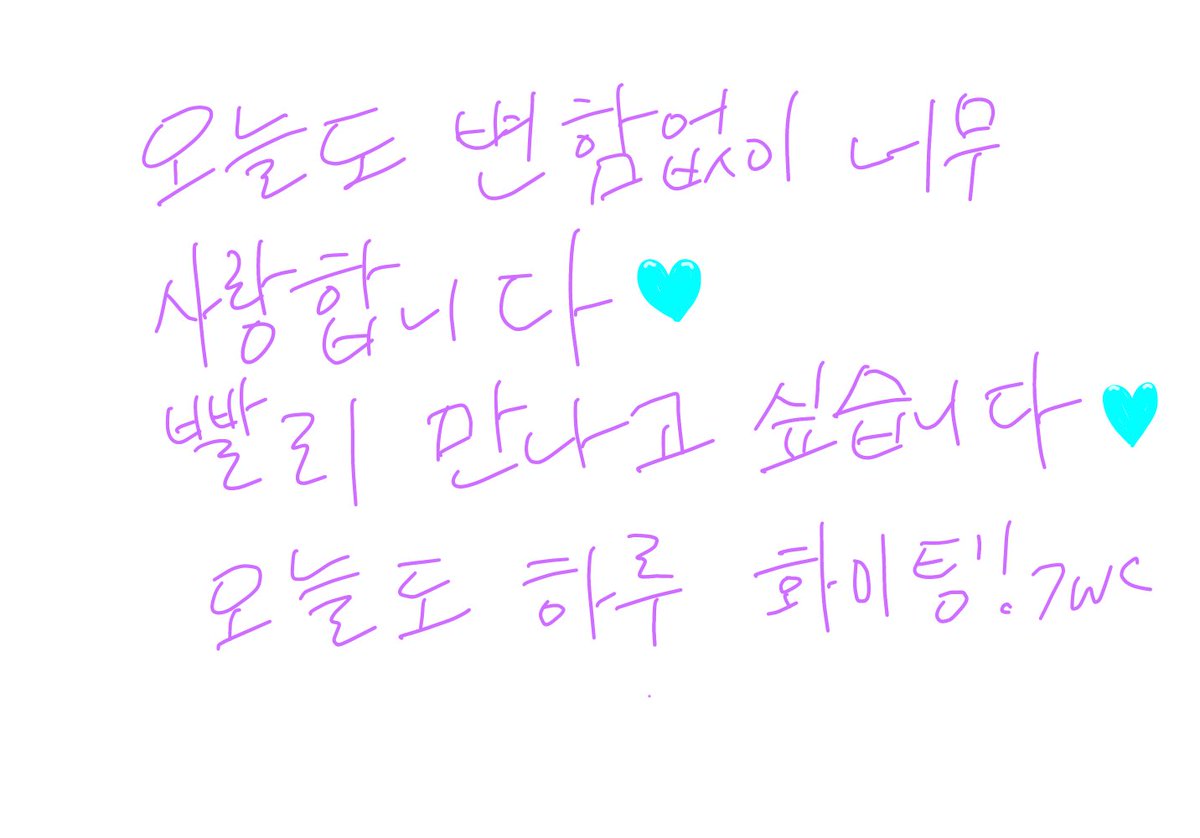 오늘도 변함없이 너무
사랑합니다 🩵
빨리 만나고 싶습니다 🩵
오늘도 하루 화이팅! >w<